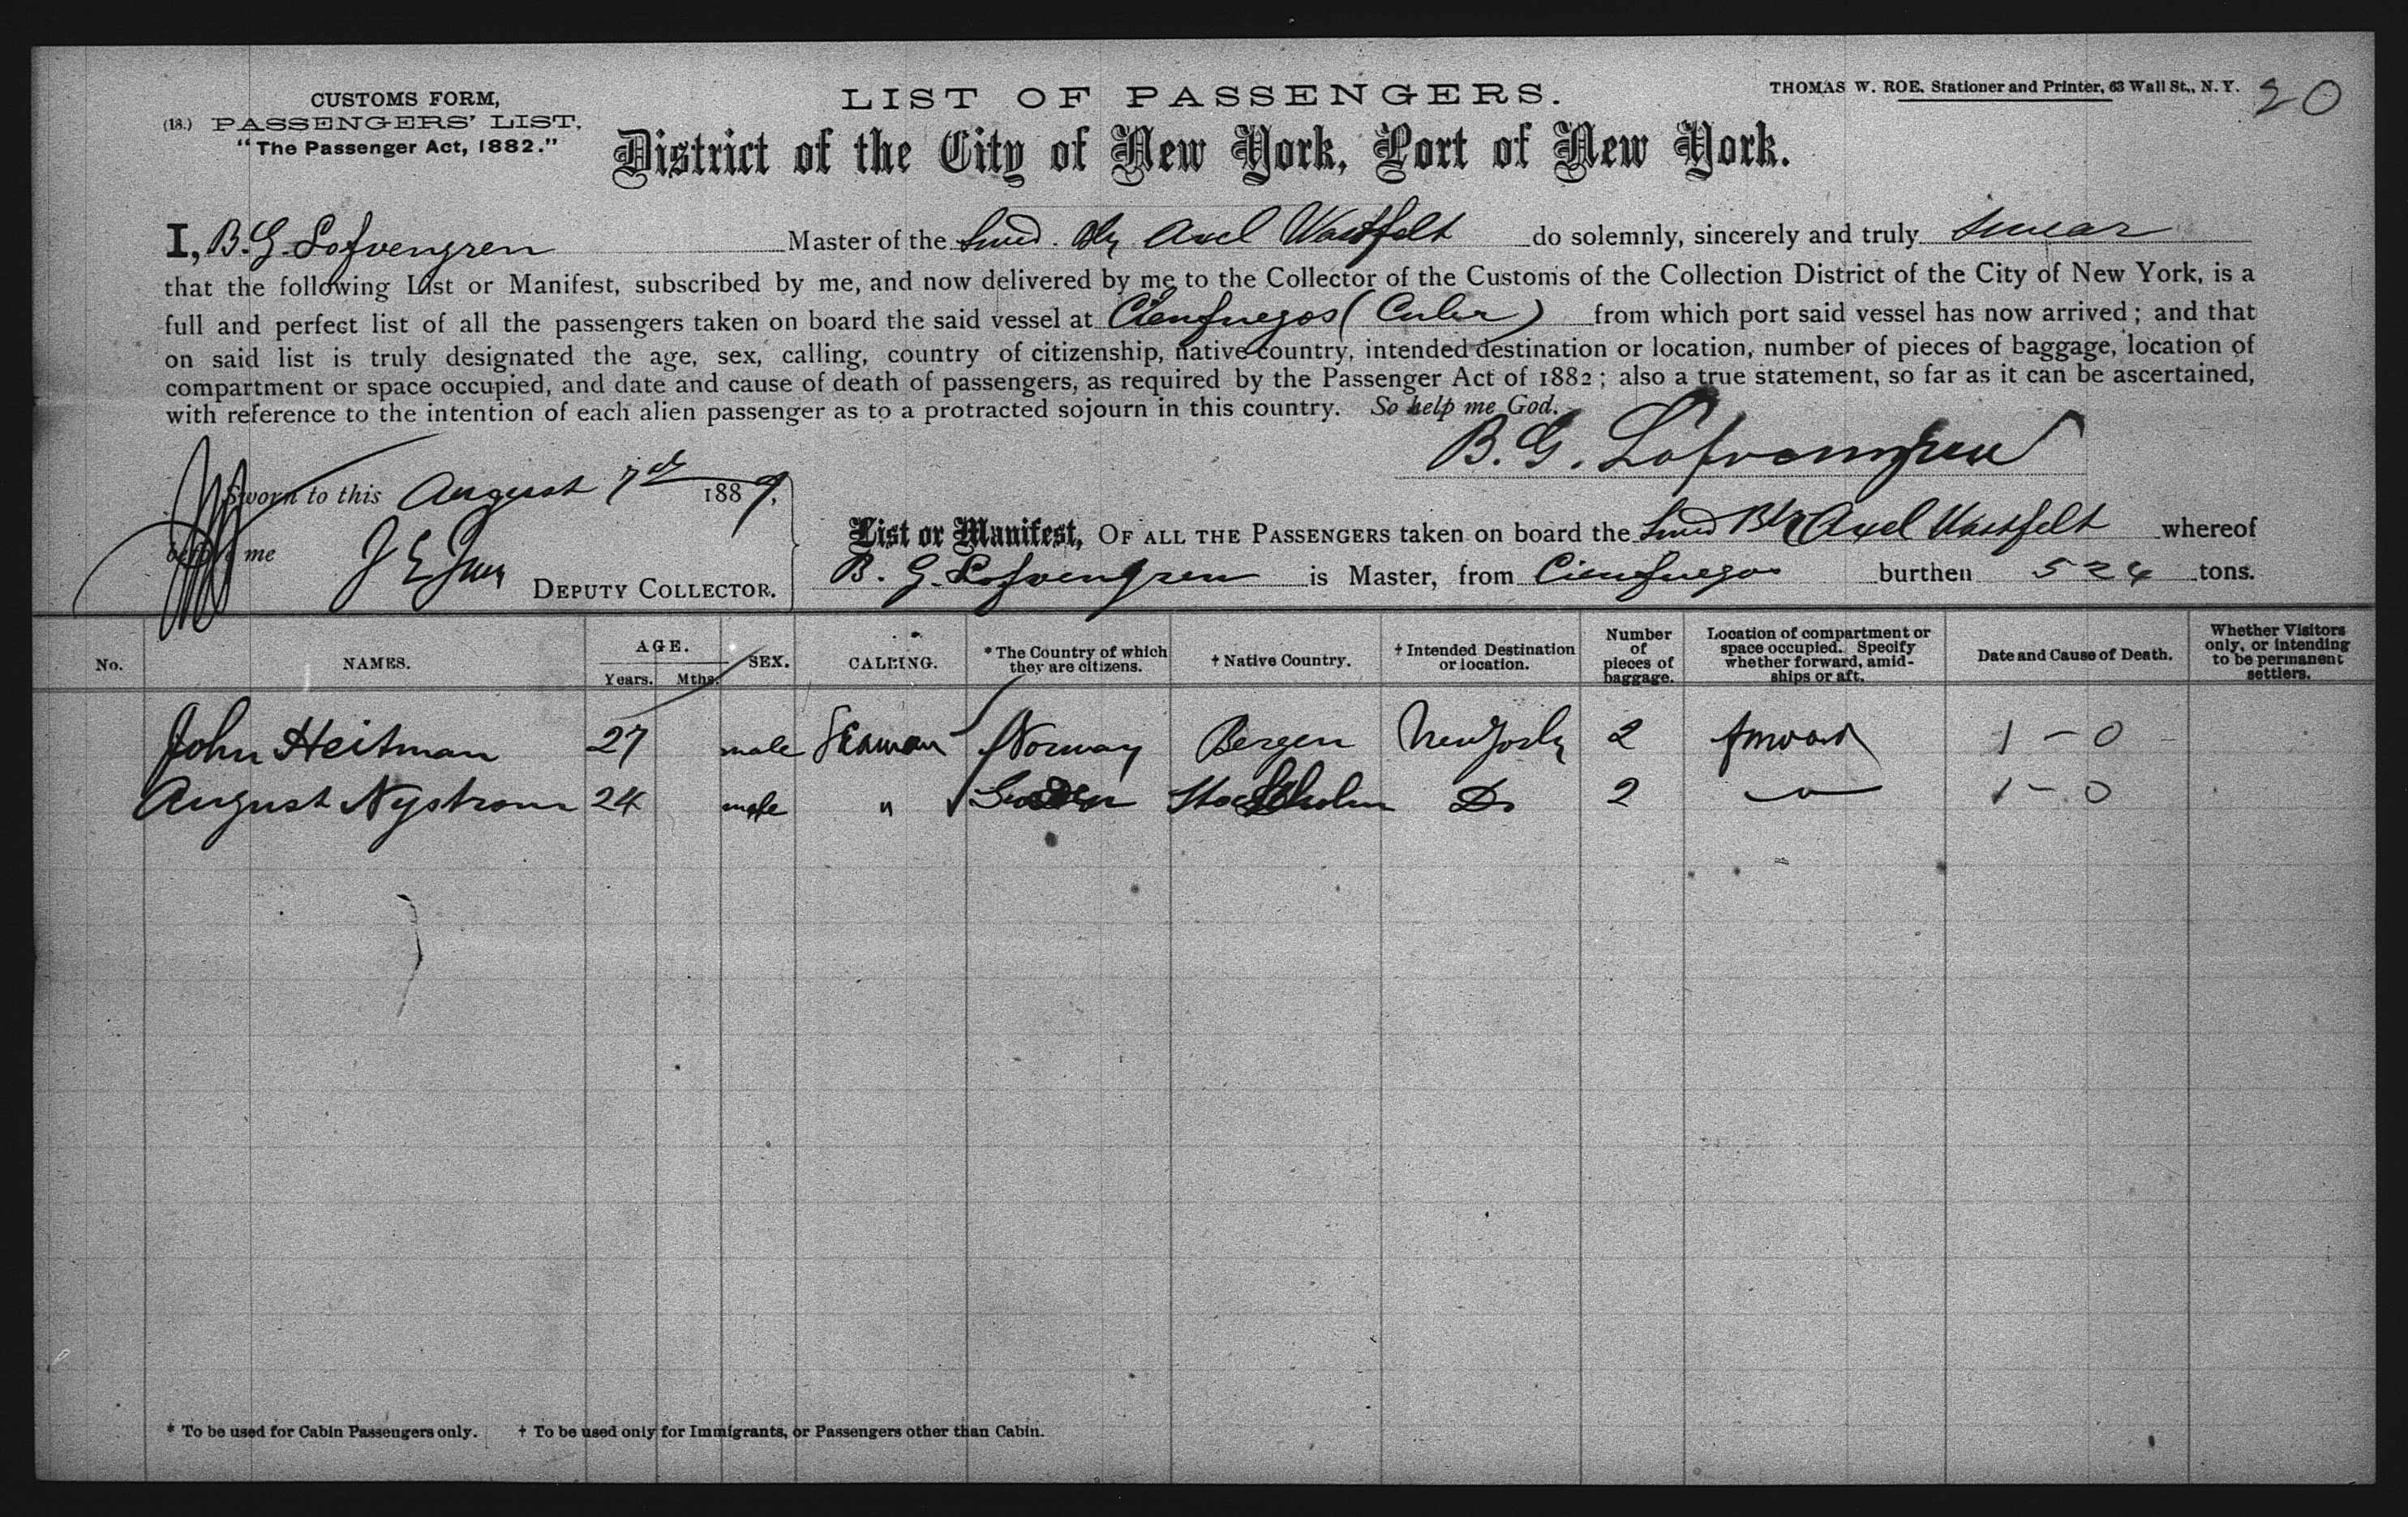 CUSTOMS FORM,
(18.) PASSENGERS' LIST,
"The Passenger Act, 1882."
LIST OF PASSENGERS.
THOMAS W. ROE, Stationer and Printer, 63 Wall St., N. Y.
20
District of the City of New York, Port of New York.
I, B. G. Lofvengren Master of the Swed. Bk Axel Wastfelt do solemnly, sincerely and truly swear
that the following List or Manifest, subscribed by me, and now delivered by me to the Collector of the Customs of the Collection District of the City of New York, is a
full and perfect list of all the passengers taken on board the said vessel at Cienfuegos (Cuba) from which port said vessel has now arrived; and that
on said list is truly designated the age, sex, calling, country of citizenship, native country, intended destination or location, number of pieces of baggage, location of
compartment or space occupied, and date and cause of death of passengers, as required by the Passenger Act of 1882; also a true statement, so far as it can be ascertained,
with reference to the intention of each alien passenger as to a protracted sojourn in this country. So help me God.
B. G. Lofvengren
Sworn to this August 7th 1889,
before me
DEPUTY COLLECTOR.
List or Manifest, OF ALL THE PASSENGERS taken on board the Swed Bk Axel Wastfelt whereof
B. G. Lofvengren is Master, from Cienfuegos burthen 524 tons.
No. NAMES. AGE. Years. Mths. SEX. CALLING. * The Country of which they are citizens. † Native Country. † Intended Destination or location. Number of pieces of baggage. Location of compartment or space occupied. Specify whether forward, amidships or aft. Date and Cause of Death. Whether Visitors only, or intending to be permanent settlers.
John Heitman 27 male Seaman Norway Bergen New York 2 forward 1 - 0
August Nystrom 24 male " Sweden Stockholm Do 2 — 1 - 0
* To be used for Cabin Passengers only. † To be used only for Immigrants, or Passengers other than Cabin.